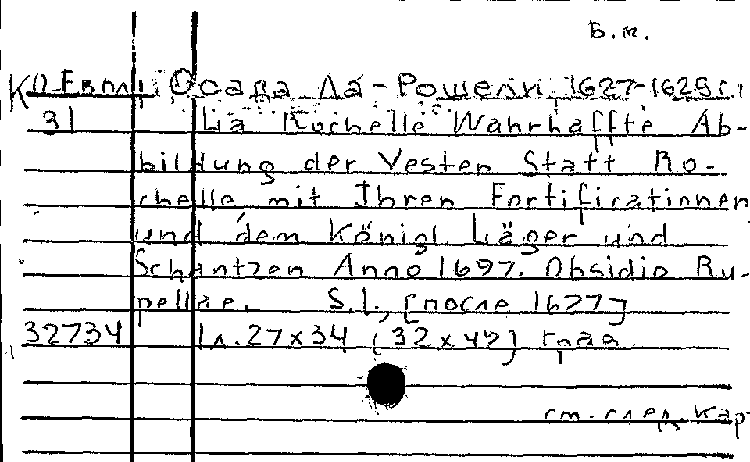 Б.м.
КО Европ. Осада Ла-Рошели, 1627-1628 г.
31 La Rochelle Wahrhaffte Ab-
bildung der Vesten Statt Ro-
chelle mit Ihren Fortificationen
und dem Königl Läger und
Schantzen Anno 1697. Obsidio Ru-
pellae. S.l., [после 1627]
32734 1 л. 27x34 (32x42) грав
см. след. кар